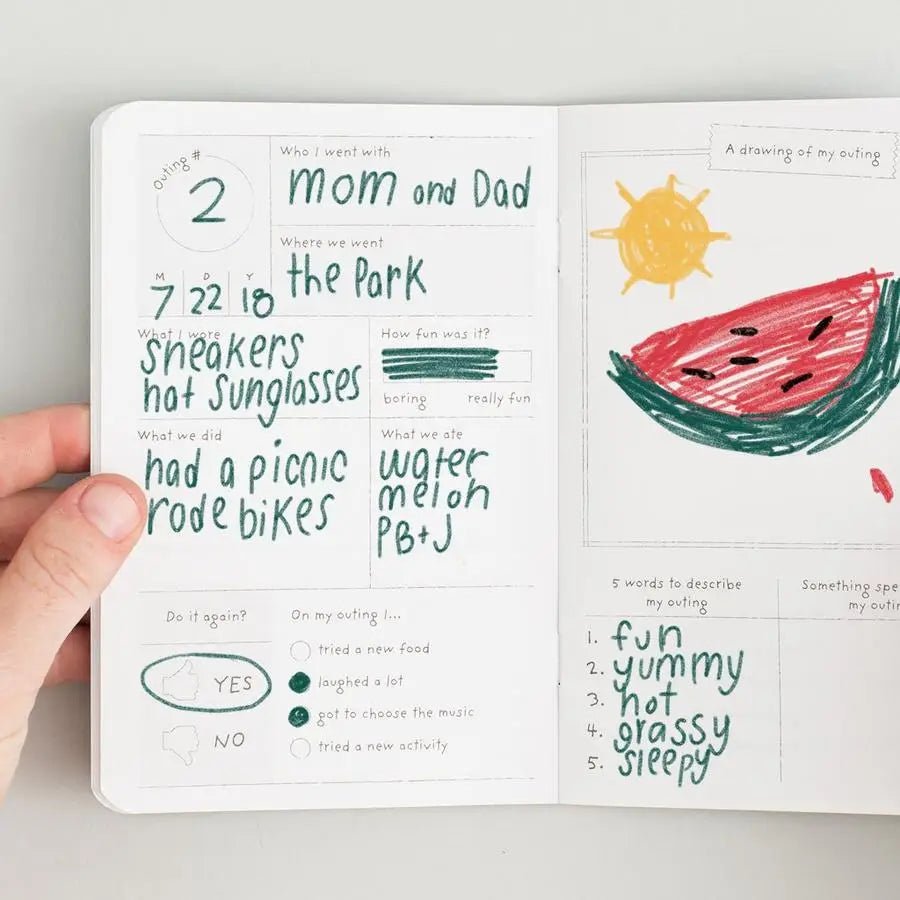 Outing #
2
M D Y
7 22 18
Who I went with
mom and Dad
Where we went
the Park
What I wore
sneakers
hat sunglasses
How fun was it?
boring really fun
What we did
had a picnic
rode bikes
What we ate
water
melon
PB+J
Do it again?
YES
NO
On my outing I...
tried a new food
laughed a lot
got to choose the music
tried a new activity
A drawing of my outing
5 words to describe
my outing
1. fun
2. yummy
3. hot
4. grassy
5. sleepy
Something
my